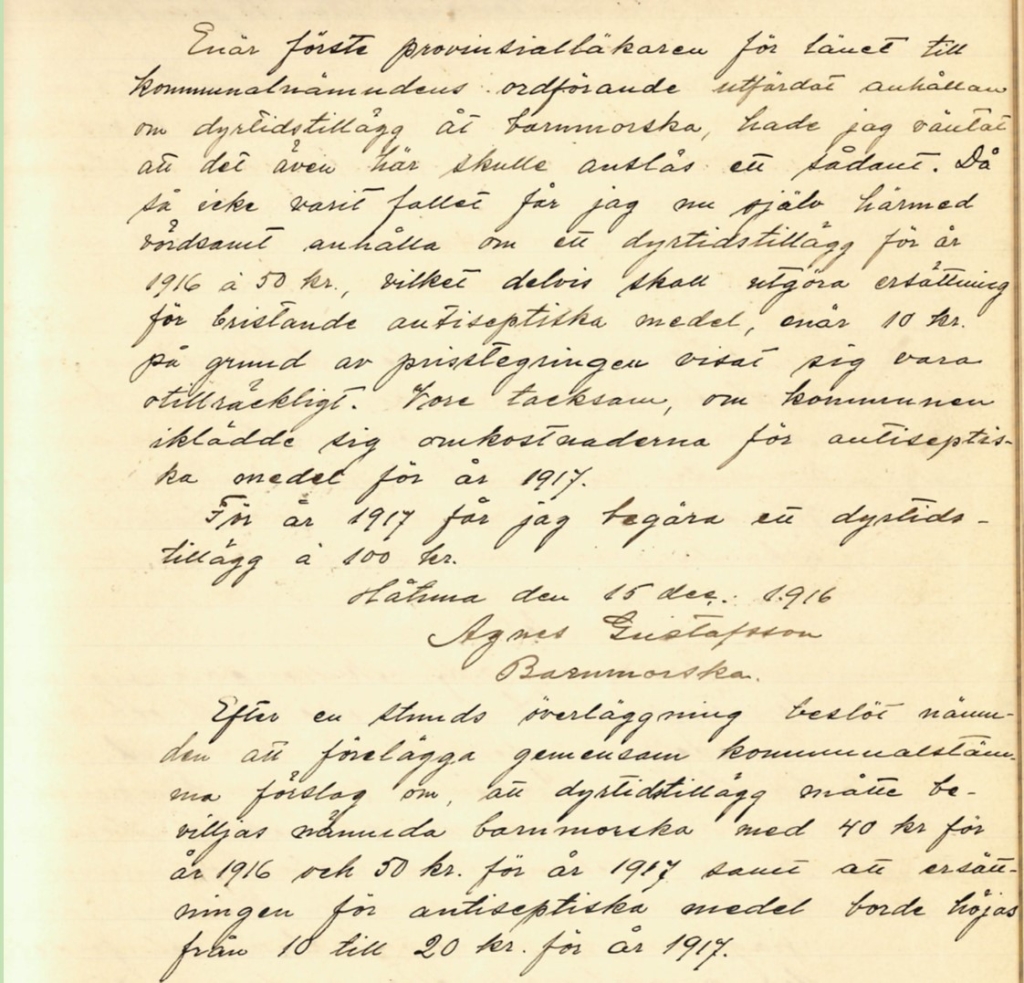 Enär förste provinsialläkaren för länet till
kommunalnämndens ordförande utfärdat anhållan
om dyrtidstillägg åt barnmorska, hade jag väntat
att det även här skulle anslås ett sådant. Då
så icke varit fallet får jag nu själv härmed
vördsamt anhålla om ett dyrtidstillägg för år
1916 à 50 kr., vilket delvis skall utgöra ersättning
för bristande antiseptiska medel, enär 10 kr.
på grund av prisstegringen visat sig vara
otillräckligt. Vore tacksam, om kommunen
iklädde sig omkostnaderna för antiseptis-
ka medel för år 1917.
För år 1917 får jag begära ett dyrtids-
tillägg à 100 kr.
den 15 dec. 1916
Agnes Gustafsson
Barnmorska.
Efter en stunds överläggning beslöt nämn-
den att förelägga gemensam kommunalstäm-
ma förslag om, att dyrtidstillägg måtte be-
viljas nämnda barnmorska med 40 kr för
år 1916 och 50 kr. för år 1917 samt att ersätt-
ningen för antiseptiska medel borde höjas
från 10 till 20 kr. för år 1917.